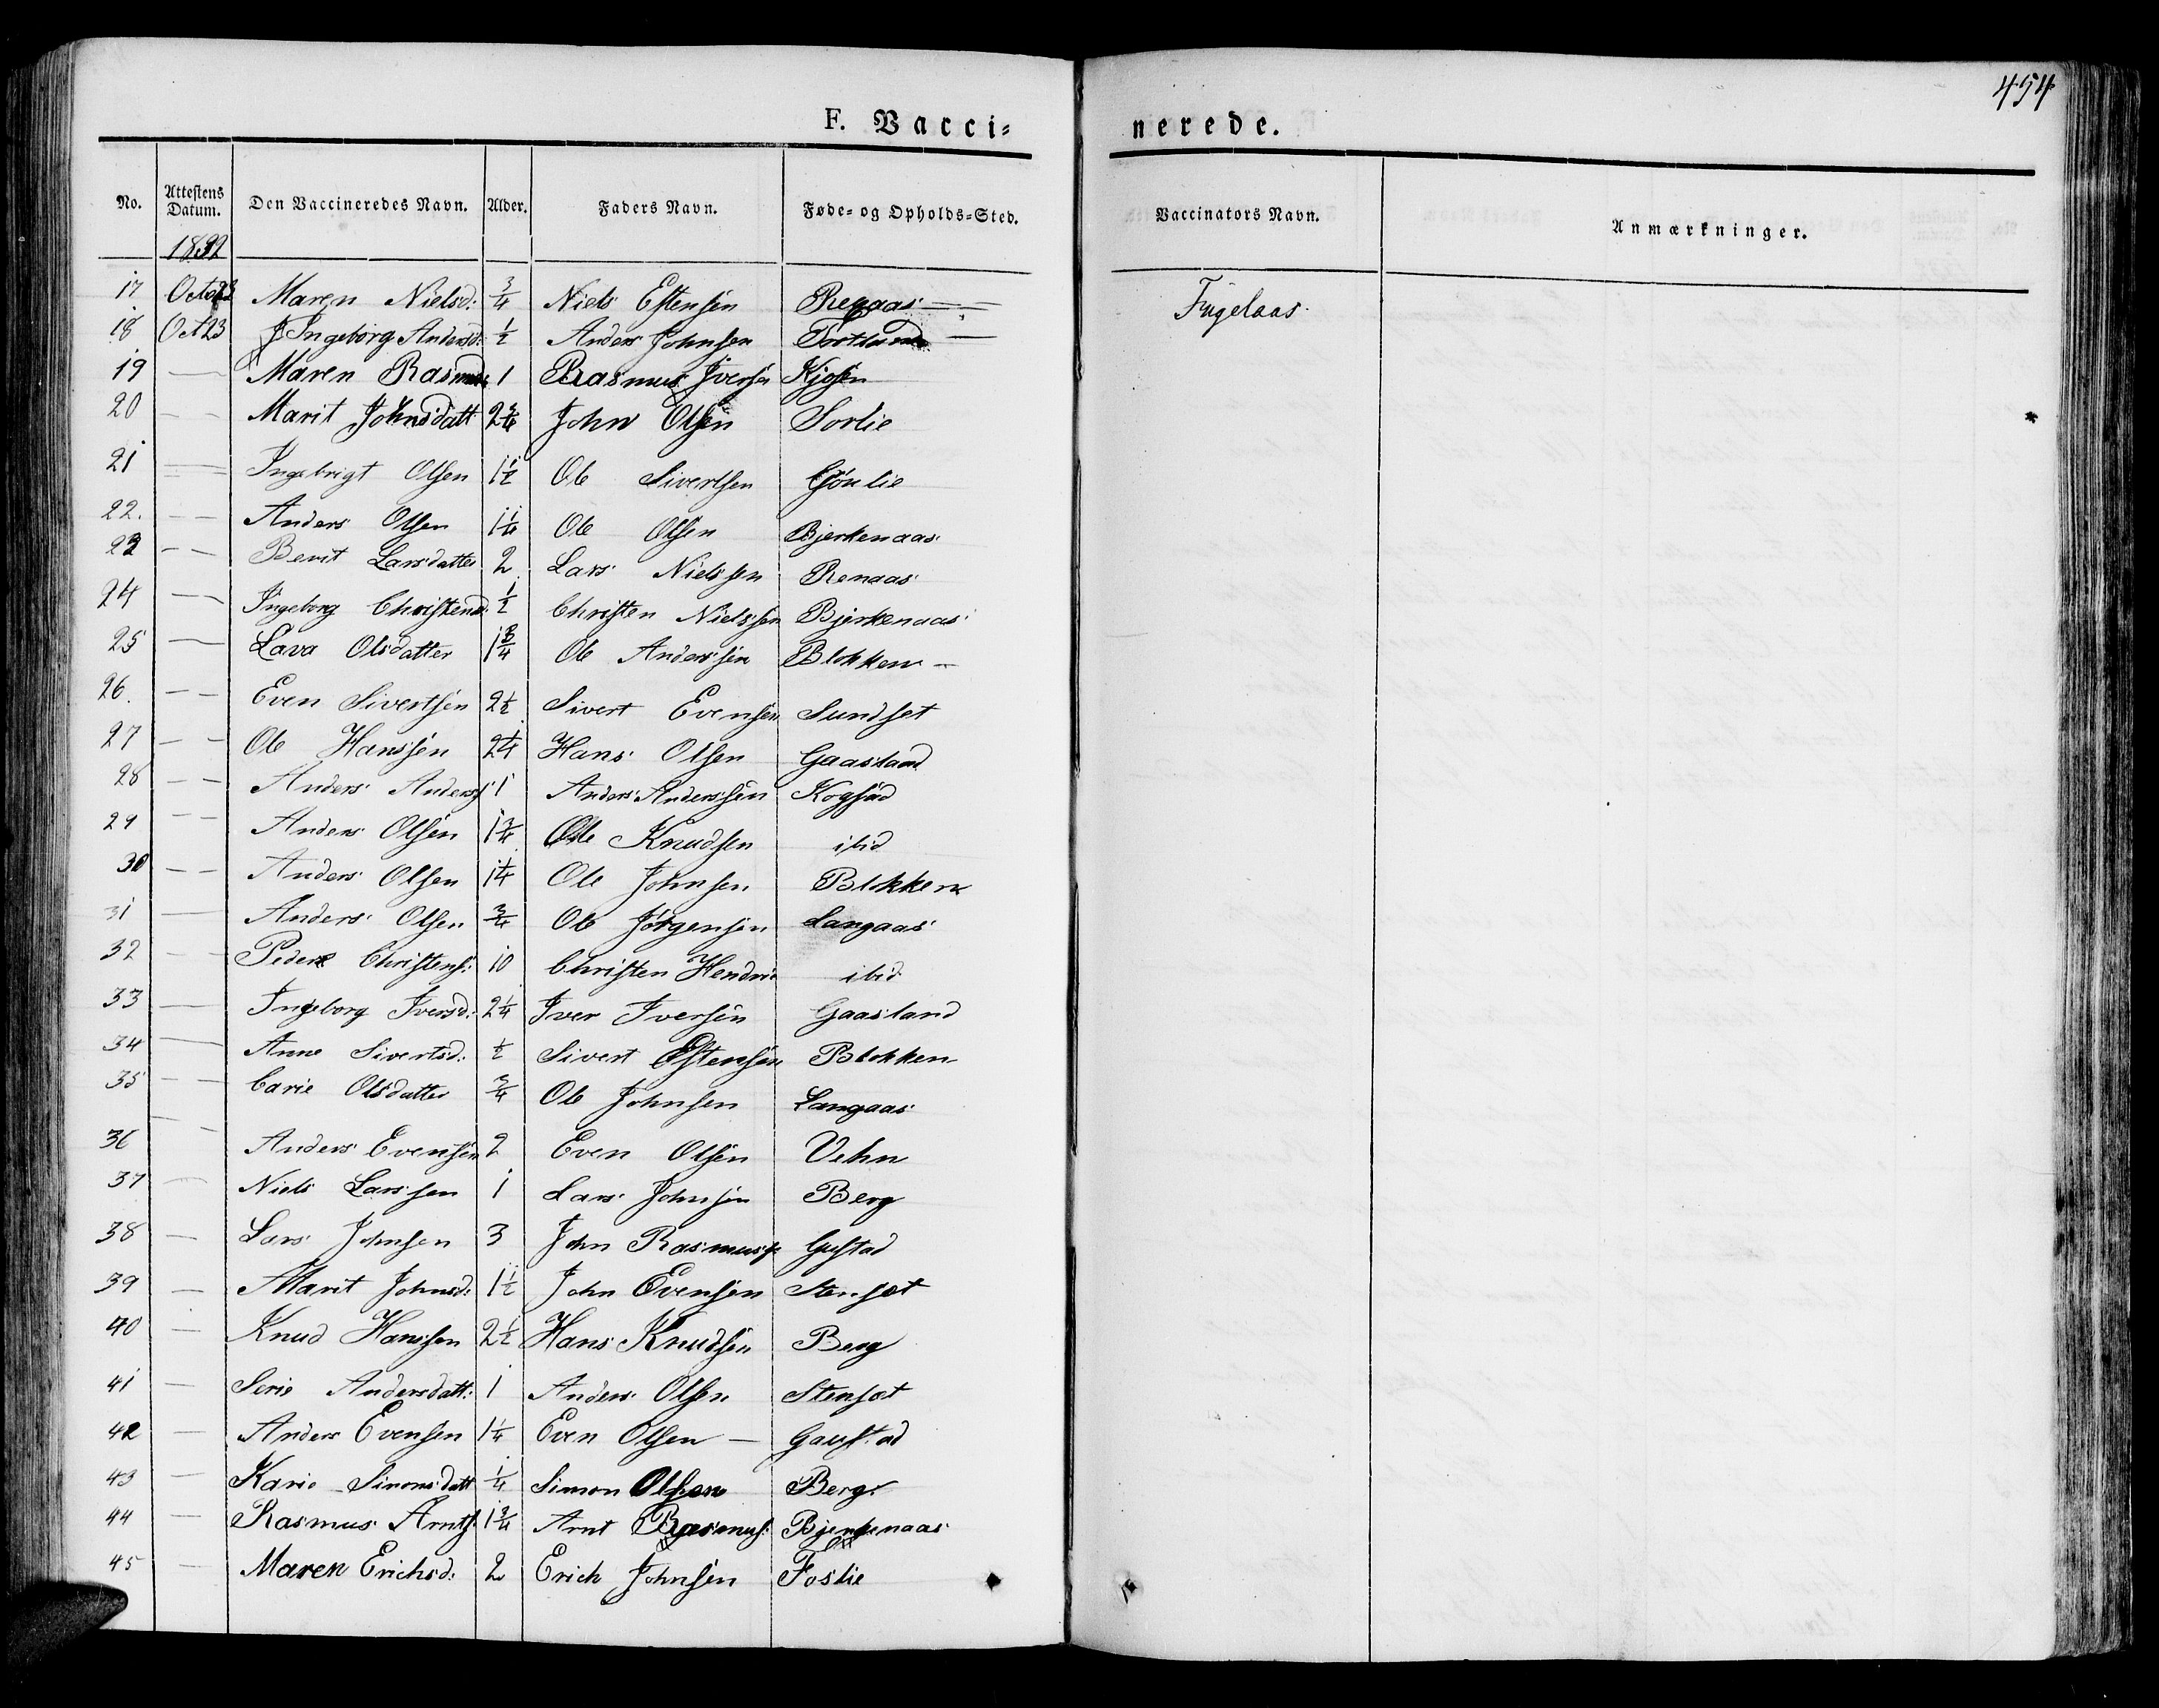 454
F. Vacci=
nerede.
No. Attestens Datum. Den Vaccineredes Navn. Alder. Faders Navn. Føde= og Opholds=Sted. Vaccinators Navn. Anmærkninger.
1832
17 Maren Nielsd: 3/4 Niels Estensen Fugelaas
18 Oct 23 Ingeborg Andersd: 1/2 Anders Johnsen
19 — Maren 1 Rasmus Iversen Kjosen
20 — — Marit Johnsdatt 2 3/4 John Olsen Sorlie
21 Ingebrigt Olsen 1 1/2 Ole Sivertsen
22. — — Anders Olsen 1 1/4 Ole Olsen Bjerkenaas
23 — — Berit Larsdatter 2 Lars Nielssen Renaas
24 — Ingeborg Christend: 1/2 Christen Nielssen Bjerkenaas
25 — Lava Olsdatter 1 3/4 Ole Anderssen Blokken —
26. — — Even Sivertsen 2 1/2 Sivert Evensen Sundset
27 — — Ole Hanssen 2 1/4 Hans Olsen Gaasland
28 — — Anders Anderss 1 Anders Anderssen
29 — — Anders Olsen 1 3/4 Ole Knudsen ibid
30 — — Anders Olsen 1 1/4 Ole Johnsen Blokken
31 — Anders Olsen 3/4 Ole Jörgensen Langaas
32 — — Peder Christens: 10 Christen Hendri ibid
33 — Ingeborg Iversd: 2 1/4 Iver Iversen Gaasland
34 — Anne Sivertsd: 1/2 Sivert Estensen Blokken
35 — — Carie Olsdatter 3/4 Ole Johnsen Langaas
36 — — Anders Evensen 2 Even Olsen Vehn
37 — Niels Larssen 1 Lars Johnsen Berg
38 — Lars Johnsen 3 John Rasmuss Gustad
39 — Marit Johnsd: 1 1/2 John Evensen Stenset
40 — Knud Hanssen 2 1/2 Hans Knudsen Berg
41 — Serie Andersdatt: 1 Anders Olsen Stenset
42 — Anders Evensen 1 1/4 Even Olsen — Gaustad
43 — Karie Simonsdatt 1/4 Simon Olsen Berg
44 — Rasmus Arnts 1 3/4 Arnt Rasmus: Bjerkenaas
45 — Maren Erichsd: 2 Erich Johnsen Foslie